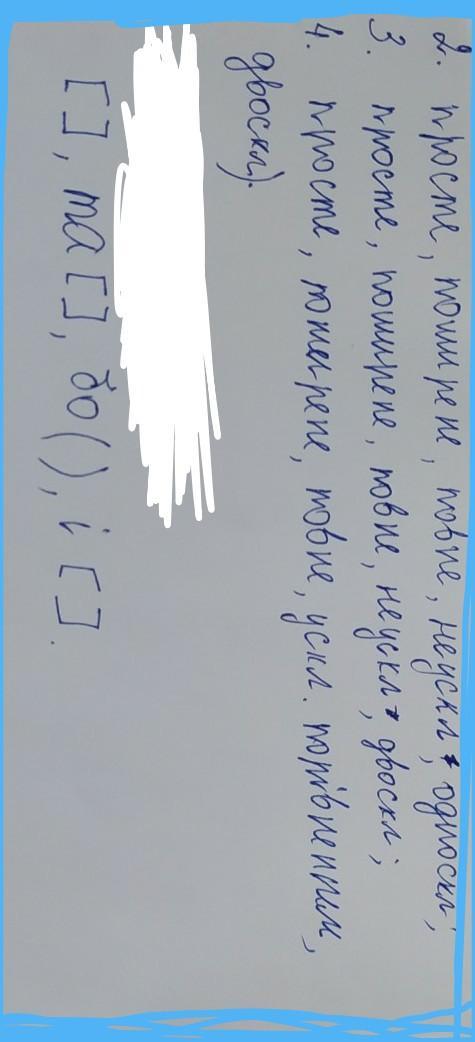 2. просте, поширене, повне, неускл, односкл;
3. просте, поширене, повне, неускл, двоскл;
4. просте, поширене, повне, ускл. порівненням,
двоскл).
[ ], та [ ], бо ( ), і [ ].